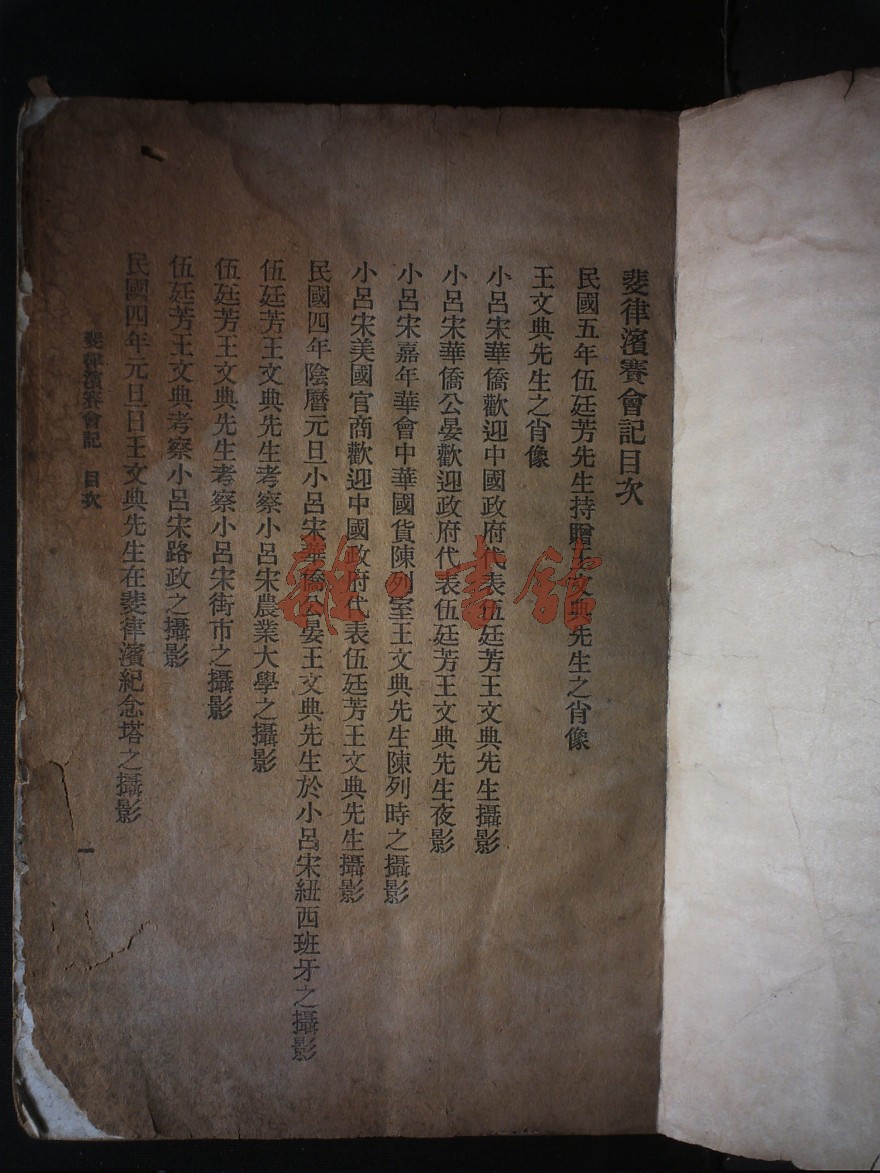 斐律濱賽會記目次
民國五年伍廷芳先生持贈王文典先生之肖像
王文典先生之肖像
小呂宋華僑歡迎中國政府代表伍廷芳王文典先生攝影
小呂宋華僑公晏歡迎政府代表伍廷芳王文典先生夜影
小呂宋嘉年華會中華國貨陳列室王文典先生陳列時之攝影
小呂宋美國官商歡迎中國政府代表伍廷芳王文典先生攝影
民國四年陰曆元旦小呂宋華僑公晏王文典先生於小呂宋紐西班牙之攝影
伍廷芳王文典先生考察小呂宋農業大學之攝影
伍廷芳王文典先生考察小呂宋街市之攝影
伍廷芳王文典考察小呂宋路政之攝影
民國四年元旦日王文典先生在斐律濱紀念塔之攝影
斐律濱賽會記 目次
一
雜·書館